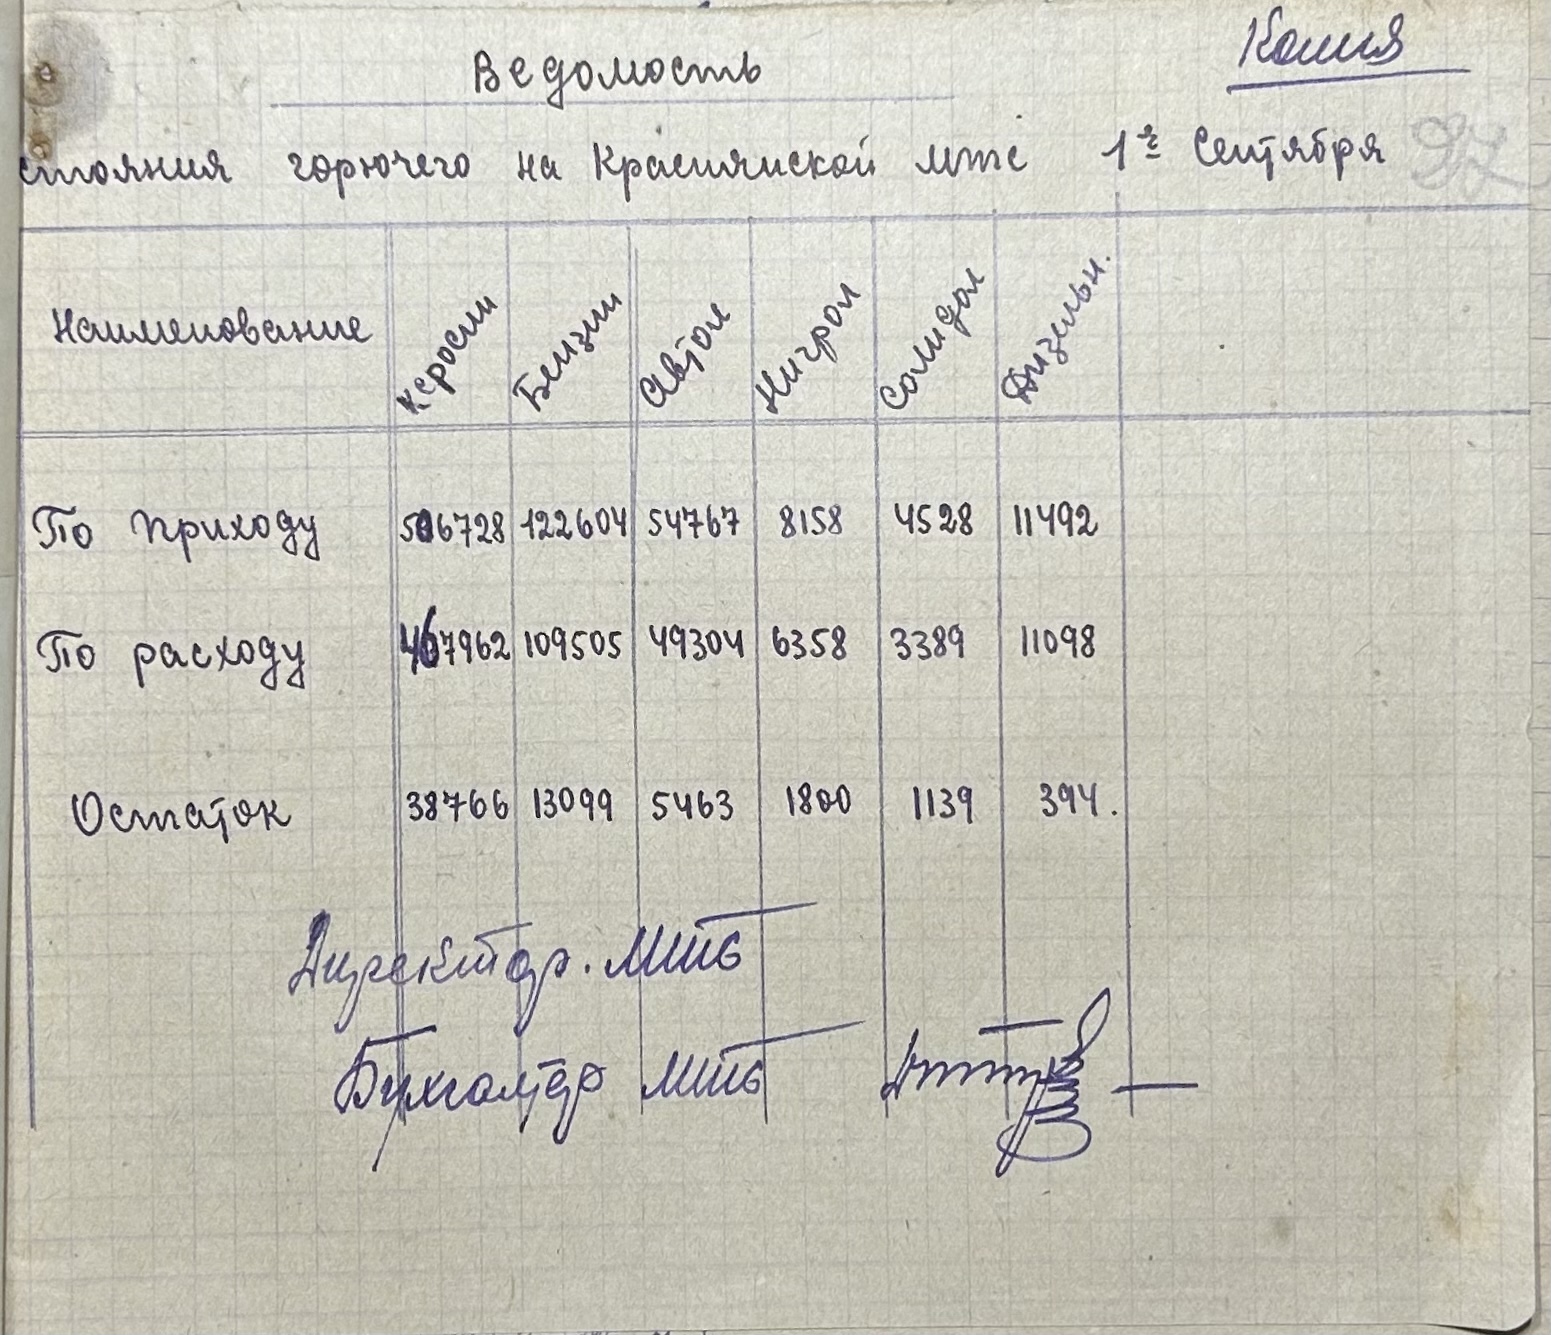 Копия
Ведомость
стояния горючего на Краснянской мтс 1е Сентября
97
Наименование Керосин Бензин Автол Нигрол Солидол Дизельн.
По приходу 506728 122604 54767 8158 4528 11492
По расходу 467962 109505 49304 6358 3389 11098
Остаток 38766 13099 5463 1800 1139 394.
Директор. МТС
Бухгалтер МТС